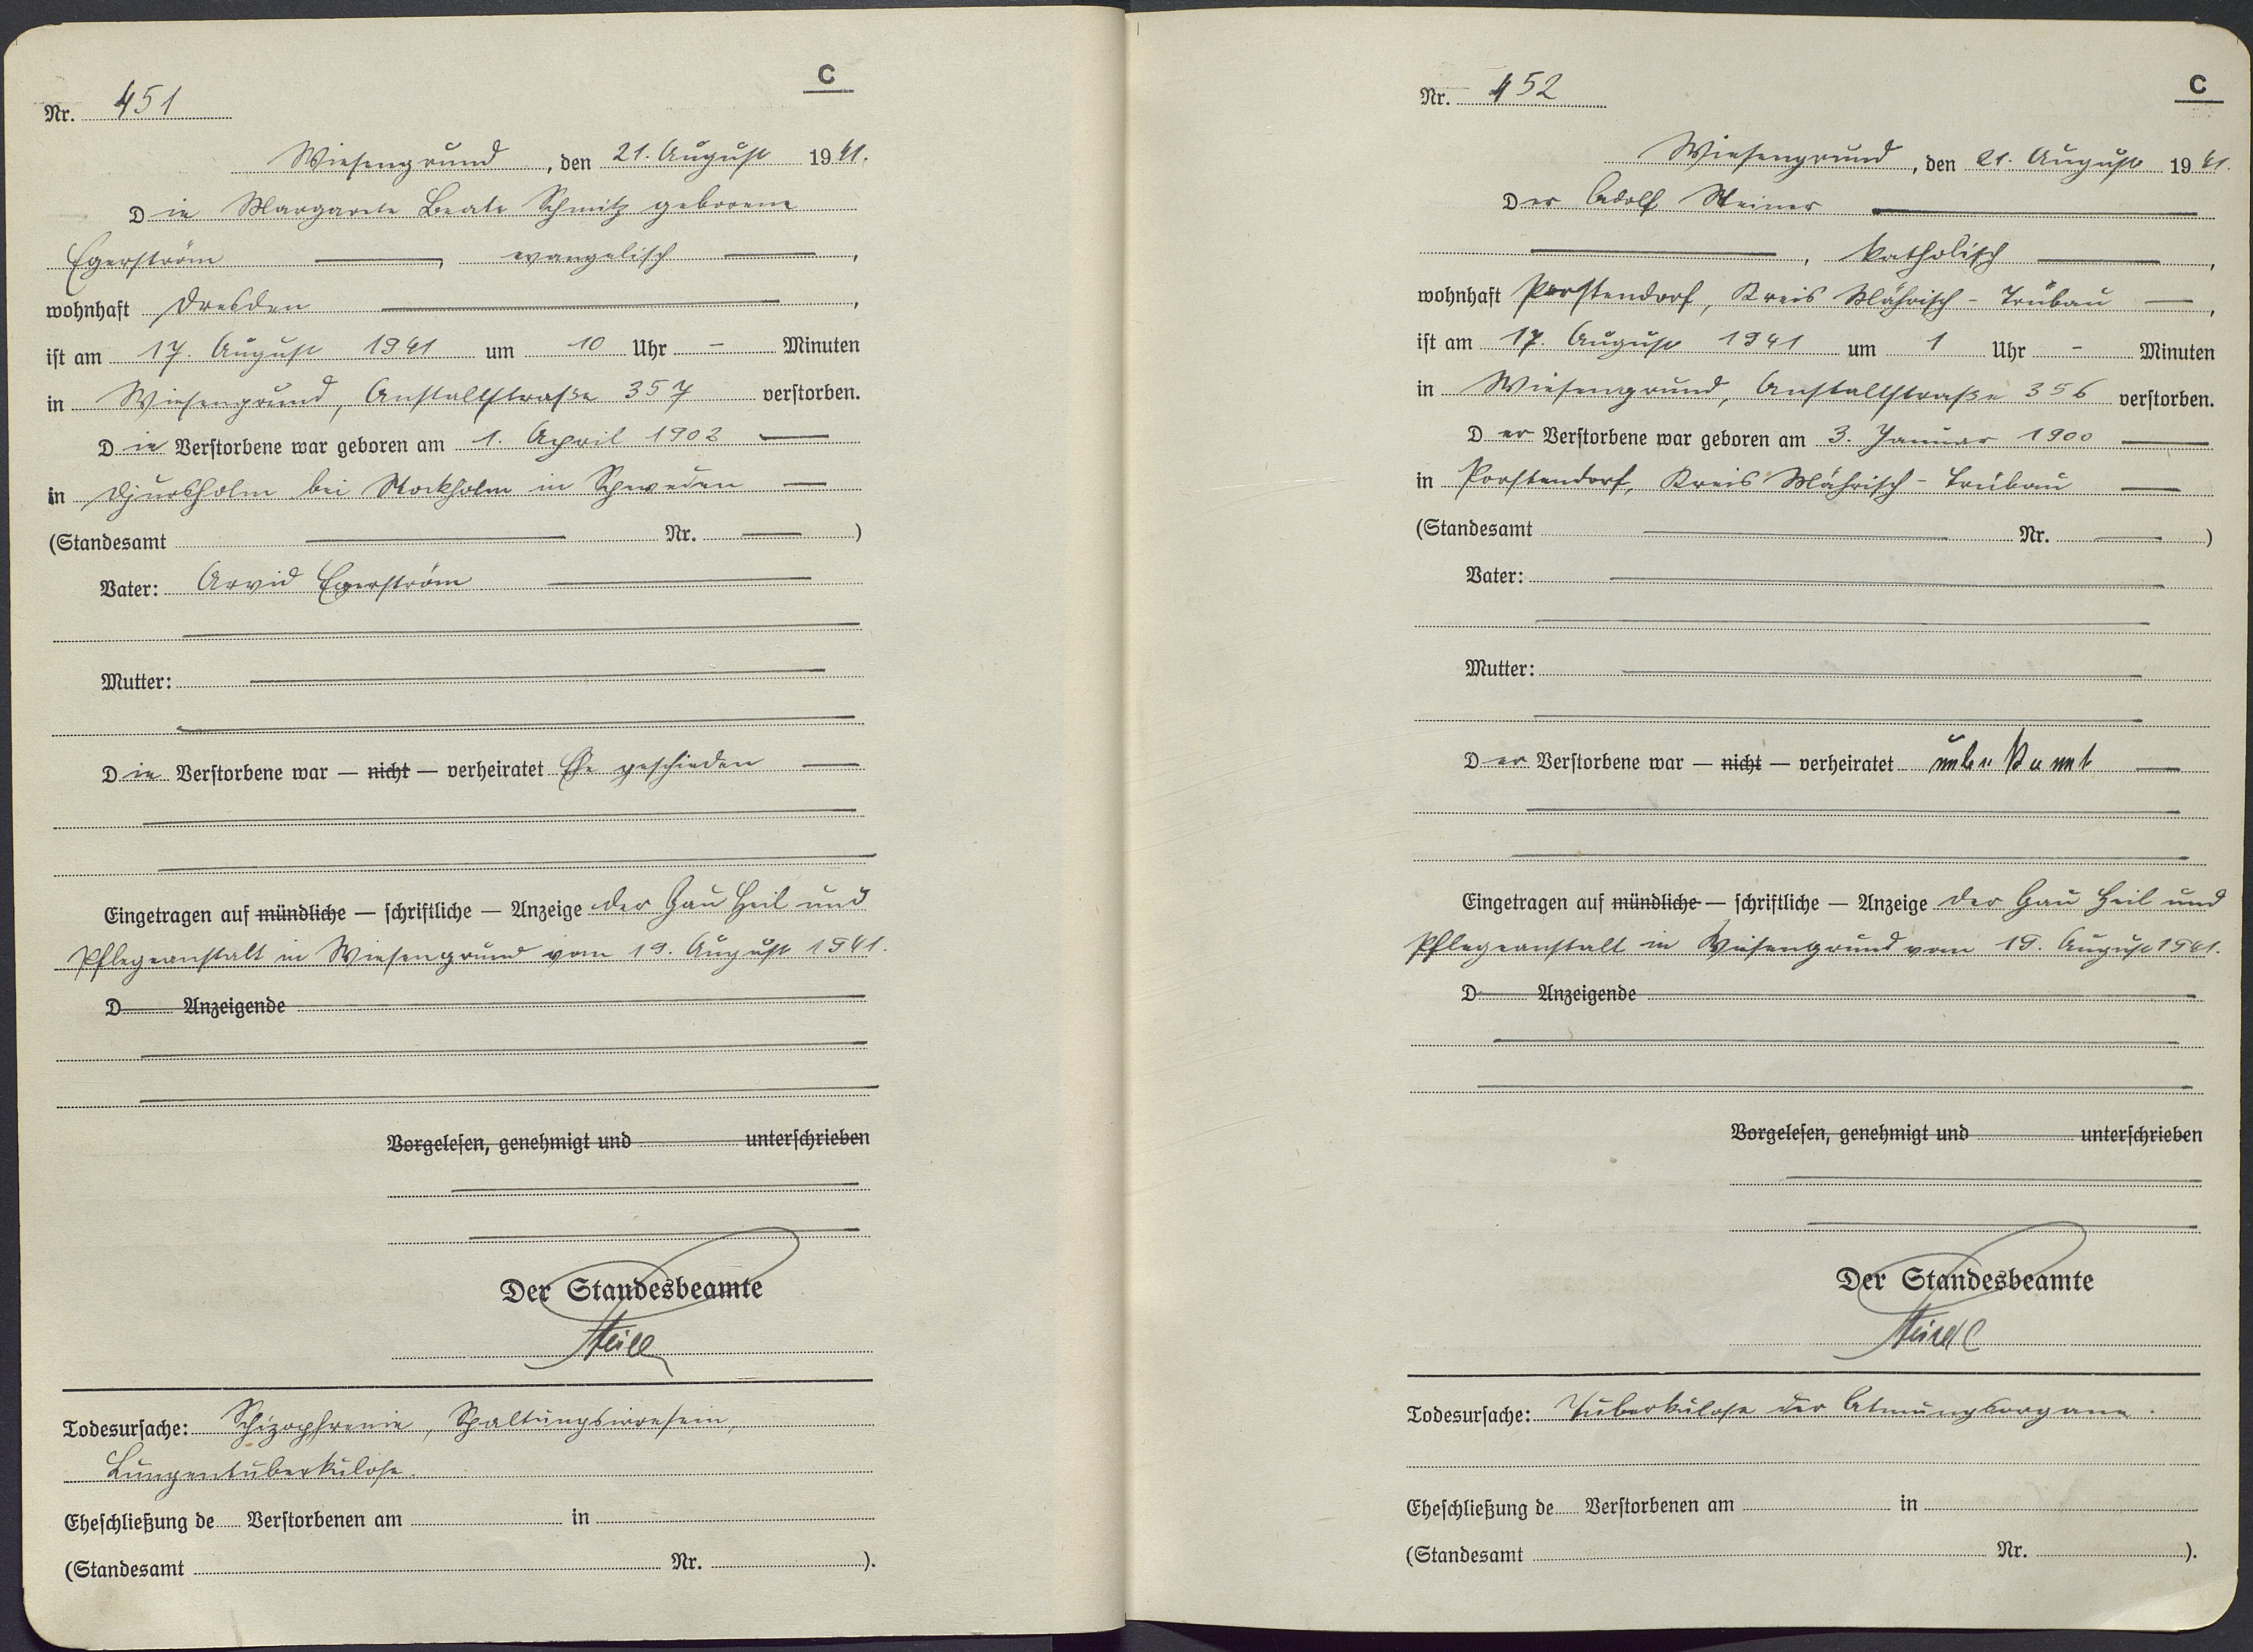 C
Nr. 451
Wiesengrund, den 21. August 1941.
Die Margarete Beate Schmitz geborene
Egerström, evangelisch,
wohnhaft Dresden,
ist am 17. August 1941 um 10 Uhr - Minuten
in Wiesengrund, Anstaltstraße 357 verstorben.
Die Verstorbene war geboren am 1. April 1902
in Djursholm bei Stockholm in Schweden
(Standesamt Nr. )
Vater: Arvid Egerström
Mutter:
Die Verstorbene war — nicht — verheiratet Ehe geschieden
Eingetragen auf mündliche — schriftliche — Anzeige der Gau Heil und
Pflegeanstalt in Wiesengrund vom 19. August 1941.
D Anzeigende
Vorgelesen, genehmigt und unterschrieben
Der Standesbeamte
Todesursache: Schizophrenie, Spaltungsirresein,
Lungentuberkulose.
Eheschließung de Verstorbenen am in
(Standesamt Nr. ).
C
Nr. 452
Wiesengrund, den 21. August 1941.
Der Adolf Steiner
, katholisch,
wohnhaft Porstendorf, Kreis Mährisch-Trübau,
ist am 17. August 1941 um 1 Uhr - Minuten
in Wiesengrund, Anstaltstraße 356 verstorben.
Der Verstorbene war geboren am 3. Januar 1900
in Porstendorf, Kreis Mährisch-Trübau
(Standesamt Nr. )
Vater:
Mutter:
Der Verstorbene war — nicht — verheiratet unbekannt
Eingetragen auf mündliche — schriftliche — Anzeige der Gau Heil und
Pflegeanstalt in Wiesengrund vom 19. August 1941.
D Anzeigende
Vorgelesen, genehmigt und unterschrieben
Der Standesbeamte
Todesursache: Tuberkulose der Atmungsorgane.
Eheschließung de Verstorbenen am in
(Standesamt Nr. ).